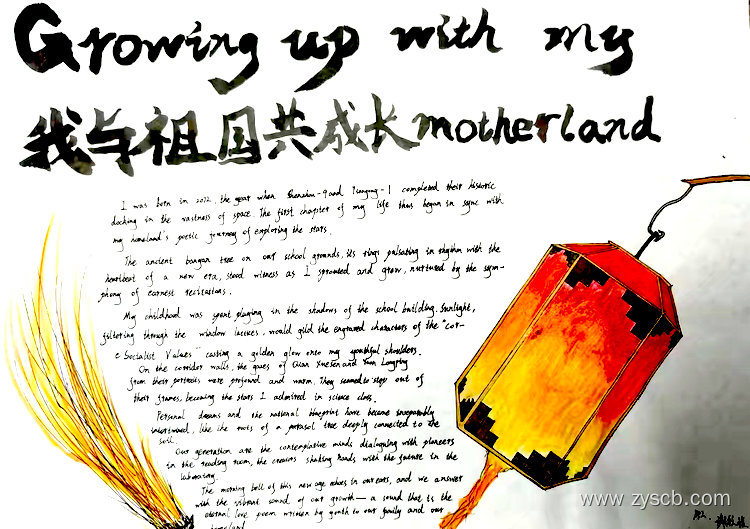 Growing up with my
我与祖国共成长motherland
I was born in 2012, the year when Shenzhou-9 and Tiangong-1 completed their historic
docking in the vastness of space. The first chapter of my life thus began in sync with
my homeland's poetic journey of exploring the stars.
The ancient banyan tree on our school grounds, its rings pulsating in rhythm with the
heartbeat of a new era, stood witness as I sprouted and grew, nurtured by the sym-
phony of earnest recitations.
My childhood was spent playing in the shadows of the school building. Sunlight,
filtering through the window lattices, would gild the engraved characters of the "cor-
e Socialist Values" casting a golden glow onto my youthful shoulders.
On the corridor walls, the gazes of Qian Xuesen and Yuan Longping
from their portraits were profound and warm. They seemed to step out of
their frames, becoming the stars I admired in science class.
Personal dreams and the national blueprint have become inseparably
intertwined, like the roots of a parasol tree deeply connected to the
soil.
Our generation are the contemplative minds dialoguing with pioneers
in the reading room, the creators shaking hands with the future in the
laboratory.
The morning bell of this new age echoes in our ears, and we answer
with the vibrant sound of our growth — a sound that is the
eternal love poem written by youth to our family and our
homeland
www.zyscb.com